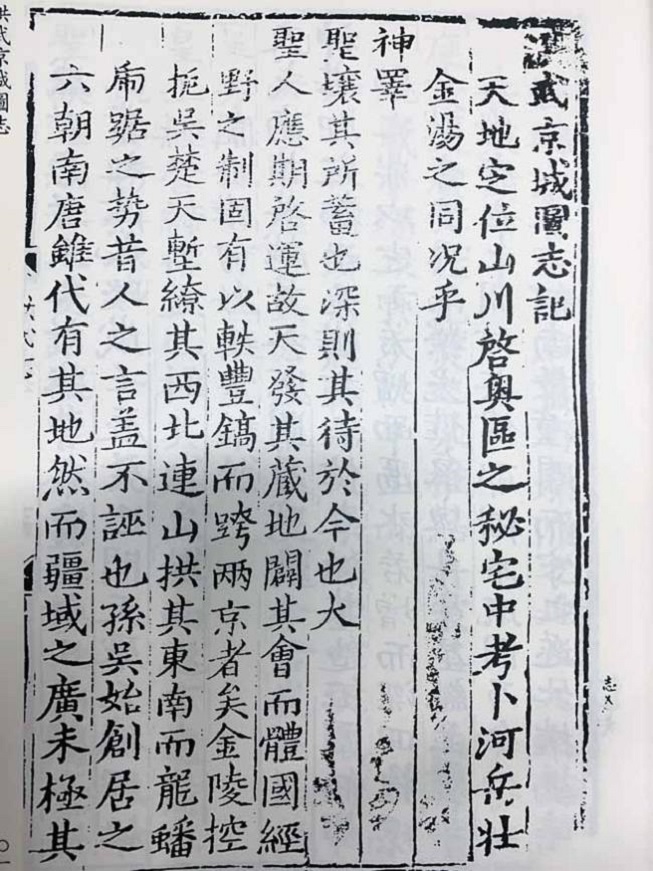 洪武京城圖志記
天地定位山川啓奥區之秘宅中考卜河岳壯
金湯之同况乎
神睪
聖壤其所蓄也深則其待於今也大
聖人應期啓運故天發其藏地闢其會而體國經
野之制固有以軼豐鎬而跨兩京者矣金陵控
扼吳楚天塹繚其西北連山拱其東南而龍蟠
乕踞之勢昔人之言盖不誣也孫吳始創居之
六朝南唐雖代有其地然而疆域之廣未極其
洪武京城圖志